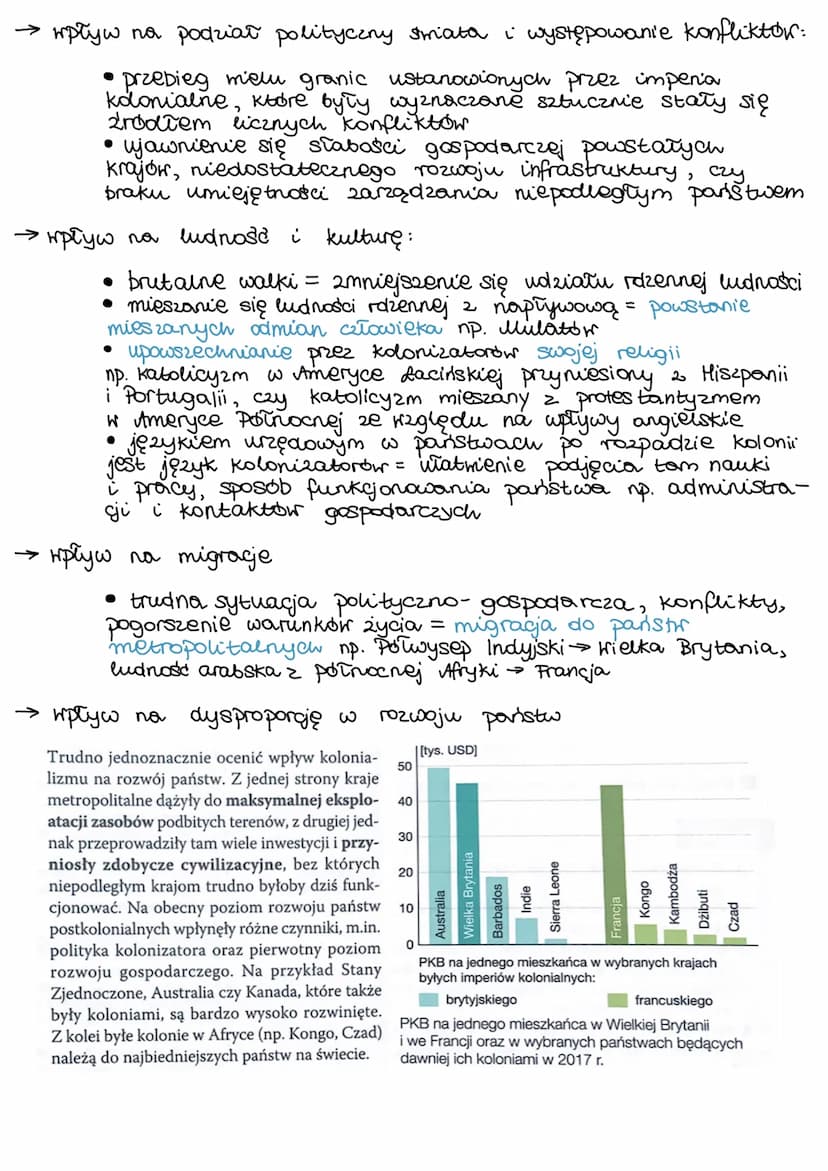 → wpływ na podział polityczny świata i występowanie konfliktów:
• przebieg wielu granic ustanowionych przez imperia
kolonialne, które były wyznaczone sztucznie stały się
źródłem licznych konfliktów
• ujawnienie się słabości gospodarczej powstałych
krajów, niedostatecznego rozwoju infrastruktury, czy
braku umiejętności zarządzania niepodległym państwem
→ wpływ na ludność i kulturę:
• brutalne walki = zmniejszenie się udziału rdzennej ludności
• mieszanie się ludności rdzennej z napływową = powstanie
mieszanych odmian człowieka np. Mulatów
• upowszechnianie przez kolonizatorów swojej religii
np. katolicyzm w Ameryce Łacińskiej przyniesiony z Hiszpanii
i Portugalii, czy katolicyzm mieszany z protestantyzmem
w Ameryce Północnej ze względu na wpływy angielskie
• językiem urzędowym w państwach po rozpadzie kolonii
jest język kolonizatorów = ułatwienie podjęcia tam nauki
i pracy, sposób funkcjonowania państwa np. administra-
cji i kontaktów gospodarczych
→ wpływ na migracje
• trudna sytuacja polityczno-gospodarcza, konflikty,
pogorszenie warunków życia = migracja do państw
metropolitalnych np. Półwysep Indyjski → Wielka Brytania,
ludność arabska z północnej Afryki → Francja
→ wpływ na dysproporcję w rozwoju państw
Trudno jednoznacznie ocenić wpływ kolonia-
lizmu na rozwój państw. Z jednej strony kraje
metropolitalne dążyły do maksymalnej eksplo-
atacji zasobów podbitych terenów, z drugiej jed-
nak przeprowadziły tam wiele inwestycji i przy-
niosły zdobycze cywilizacyjne, bez których
niepodległym krajom trudno byłoby dziś funk-
cjonować. Na obecny poziom rozwoju państw
postkolonialnych wpłynęły różne czynniki, m.in.
polityka kolonizatora oraz pierwotny poziom
rozwoju gospodarczego. Na przykład Stany
Zjednoczone, Australia czy Kanada, które także
były koloniami, są bardzo wysoko rozwinięte.
Z kolei byłe kolonie w Afryce (np. Kongo, Czad)
należą do najbiedniejszych państw na świecie.
[tys. USD]
50
40
30
20
10
0
Australia
Wielka Brytania
Barbados
Indie
Sierra Leone
Francja
Kongo
Kambodża
Dżibuti
Czad
PKB na jednego mieszkańca w wybranych krajach
byłych imperiów kolonialnych:
brytyjskiego
francuskiego
PKB na jednego mieszkańca w Wielkiej Brytanii
i we Francji oraz w wybranych państwach będących
dawniej ich koloniami w 2017 r.